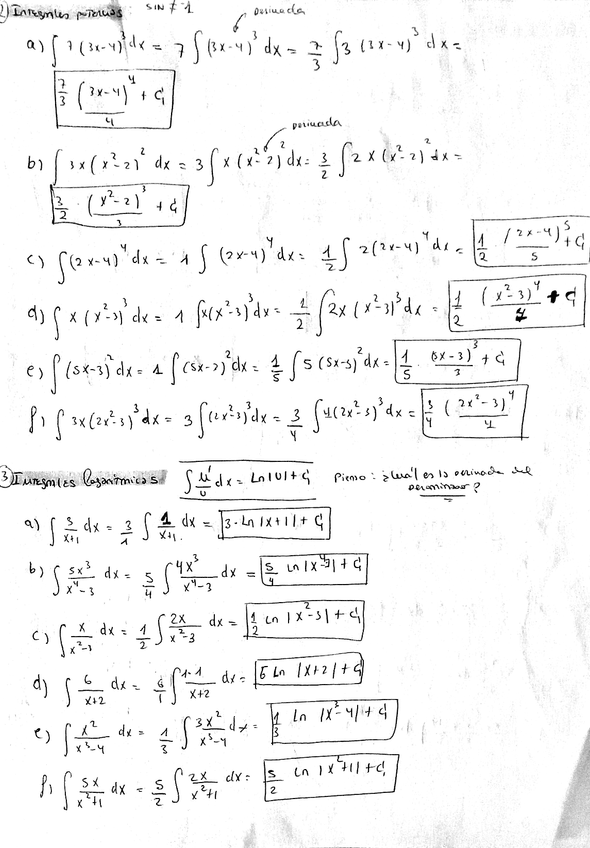 2) Integrales potencias SI N ≠ -1 derivada
a) ∫ 7 (3x-4)³ dx = 7 ∫ (3x-4)³ dx = 7/3 ∫ 3 (3x-4)³ dx =
7/3 (3x-4)⁴/4 + C
derivada
b) ∫ 3x (x²-2)² dx = 3 ∫ x (x²-2)² dx = 3/2 ∫ 2x (x²-2)² dx =
3/2 · (x²-2)³/3 + C
c) ∫ (2x-4)⁴ dx = 1 ∫ (2x-4)⁴ dx = 1/2 ∫ 2 (2x-4)⁴ dx = 1/2 (2x-4)⁵/5 + C
d) ∫ x (x²-3)³ dx = 1 ∫ x (x²-3)³ dx = 1/2 ∫ 2x (x²-3)³ dx = 1/2 (x²-3)⁴/4 + C
e) ∫ (5x-3)² dx = 1 ∫ (5x-3)² dx = 1/5 ∫ 5 (5x-3)² dx = 1/5 (5x-3)³/3 + C
f) ∫ 3x (2x²-3)³ dx = 3 ∫ (2x²-3)³ dx = 3/4 ∫ 4 (2x²-3)³ dx = 3/4 (2x²-3)⁴/4
3 Integrales logarítmicas ∫ u'/u dx = Ln |u| + C Pienso: ¿Cuál es la derivada del
denominador?
a) ∫ 3/(x+1) dx = 3/1 ∫ 1/(x+1) dx = 3 · Ln |x+1| + C
b) ∫ 5x³/(x⁴-3) dx = 5/4 ∫ 4x³/(x⁴-3) dx = 5/4 Ln |x⁴-3| + C
c) ∫ x/(x²-3) dx = 1/2 ∫ 2x/(x²-3) dx = 1/2 Ln |x²-3| + C
d) ∫ 6/(x+2) dx = 6/1 ∫ 1·1/(x+2) dx = 6 Ln |x+2| + C
e) ∫ x²/(x³-4) dx = 1/3 ∫ 3x²/(x³-4) dx = 1/3 Ln |x³-4| + C
f) ∫ 5x/(x²+1) dx = 5/2 ∫ 2x/(x²+1) dx = 5/2 Ln |x²+1| + C